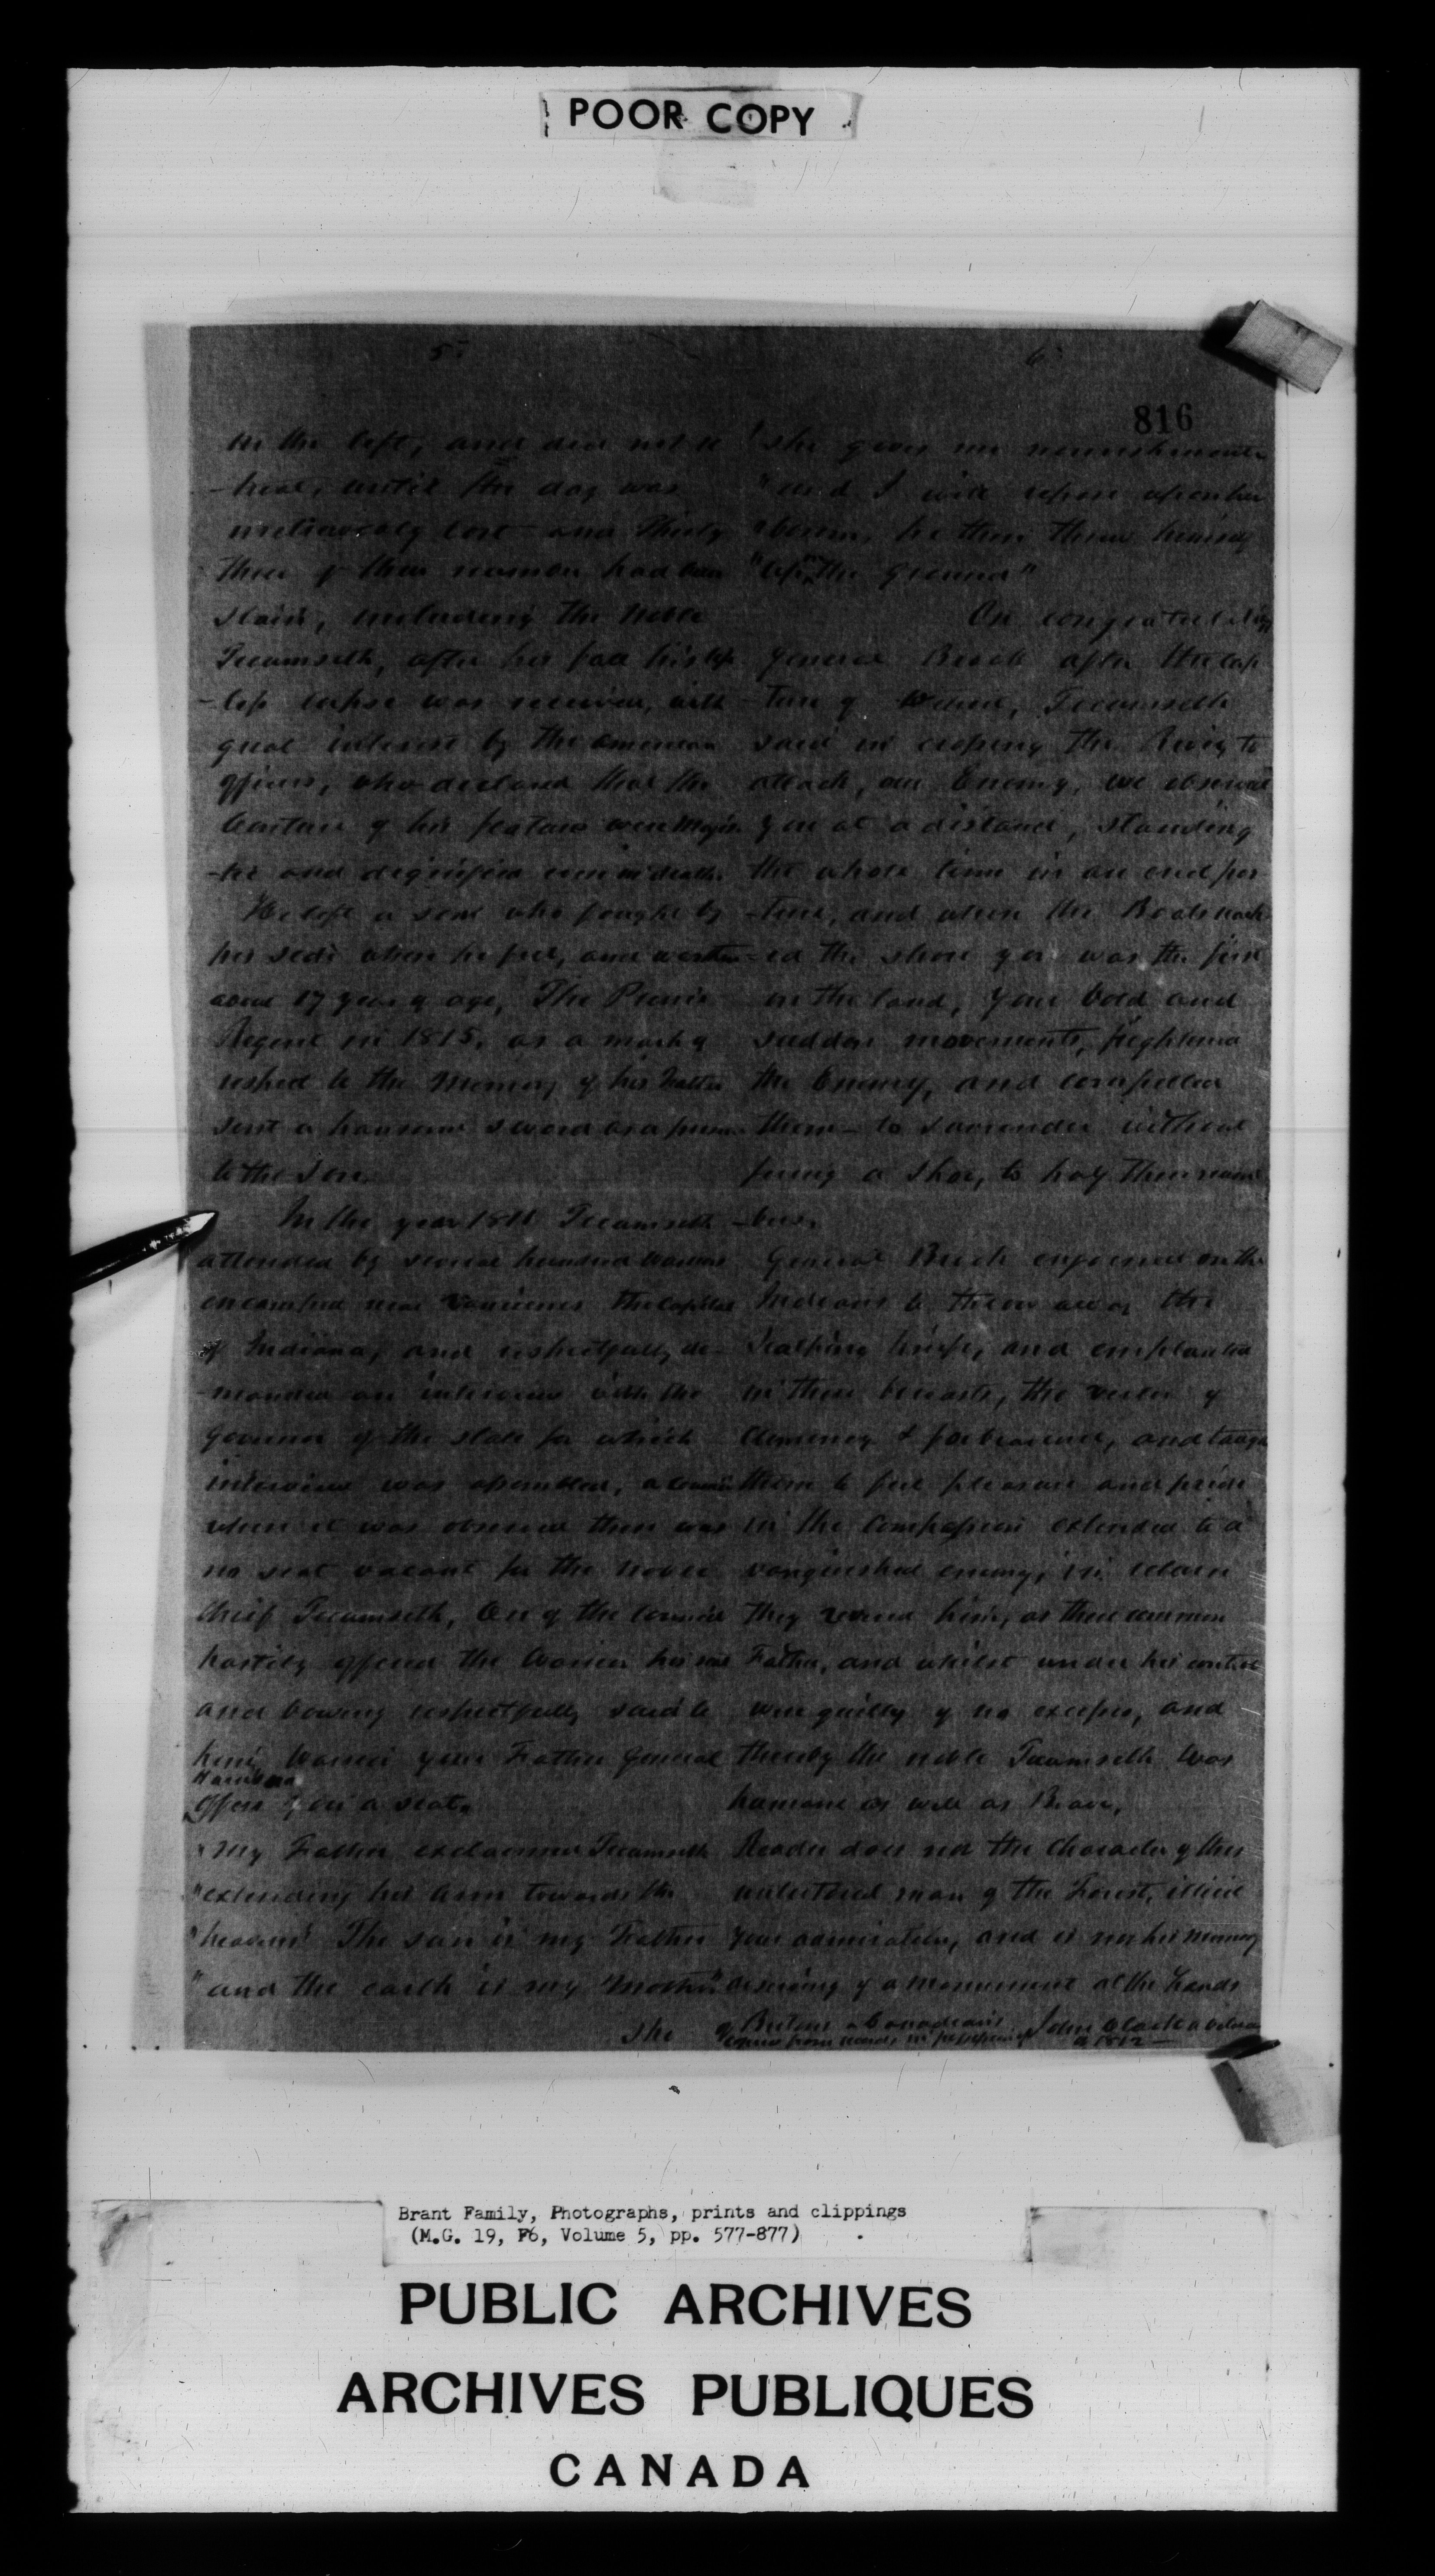 POOR COPY
5
6
816
on the left, and did not re
-treat, until the day was
irretrievably lost and thirty
three of their number had been
slain, including the noble
Tecumseth, after his fall his life
-less corpse was received, with
great interest by the American
officers, who declared that the
contour of his features were Majes
-tic and dignified even in death.
He left a son who fought by
his side when he fell, and was then
about 17 years of age, The Prince
Regent in 1815, as a mark of
respect to the Memory of his Father
sent a hansome sword as a present
to the Son.
In the year 1811 Tecumseth
attended by several hundred warriors
encamped near Vancienes the Capital
of Indiana, and respectfully de-
-manded an interview with the
Governor of the state for which
interview was assembled, a council
when it was observed there was
no seat vacant for the noble
Chief Tecumseth, One of the council
hastily offered the Warrior his seat
and bowing respectfully said to
him, Warrior your Father General
Harrison
offers you a seat.
"My Father exclaimed Tecumseth
"extending his arm towards the
"heavens" The sun is my Father
"and the earth is my Mother"
She
"she gives me nourishment
"and I will repose upon her
"bosom, he then threw himself
"upon the ground"
On congratulating
General Brock after the cap
-ture of Detroit, Tecumseth
said in crossing the River to
attack, our Enemy, we observed
you at a distance, standing
the whole time in an erect pos
-ture, and when the Boats reach
-ed the shore you was the first
on the land, Your bold and
sudden movements, frightened
the Enemy, and compelled
them to surrender without
firing a shot, to half their num
-bers.
General Brock enjoined on the
Indians to throw away the
Scalping knife, and implanted
in their breasts, the virtue of
Clemency & forbearance, and taught
them to feel pleasure and pride
in the Compassion extended to a
vanquished enemy, in return
they revered him, as their common
Father, and whilst under his control
were guilty of no excesses, and
thereby the noble Tecumseth was
humane as well as Brave,
Reader does not the Character of this
untutored man of the Forest, illicit
your admiration, and is not his memory
deserving of a monument at the hands
of Britons & Canadians John Clark
copied from records in possession of
in 1812 —
Brant Family, Photographs, prints and clippings
(M.G. 19, F6, Volume 5, pp. 577-877)
PUBLIC ARCHIVES
ARCHIVES PUBLIQUES
CANADA